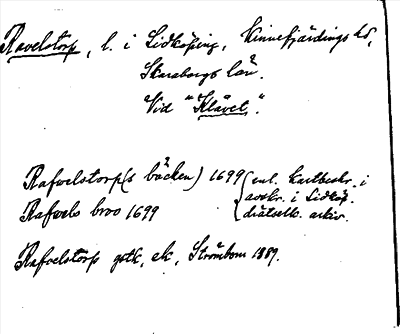 Ravelstorp, l. i Lidköping, Kinnefjärdings hd,
Skaraborgs län.
Vid "Klåvet".
Rafwelstorp(s bäcken) 1699 (enl. kartbeskr. i
Rafwels broo 1699 avskr. i Lidköp.
drätselk. arkiv.
Rafvelstorp gstk, ek, Strömbom 1889.